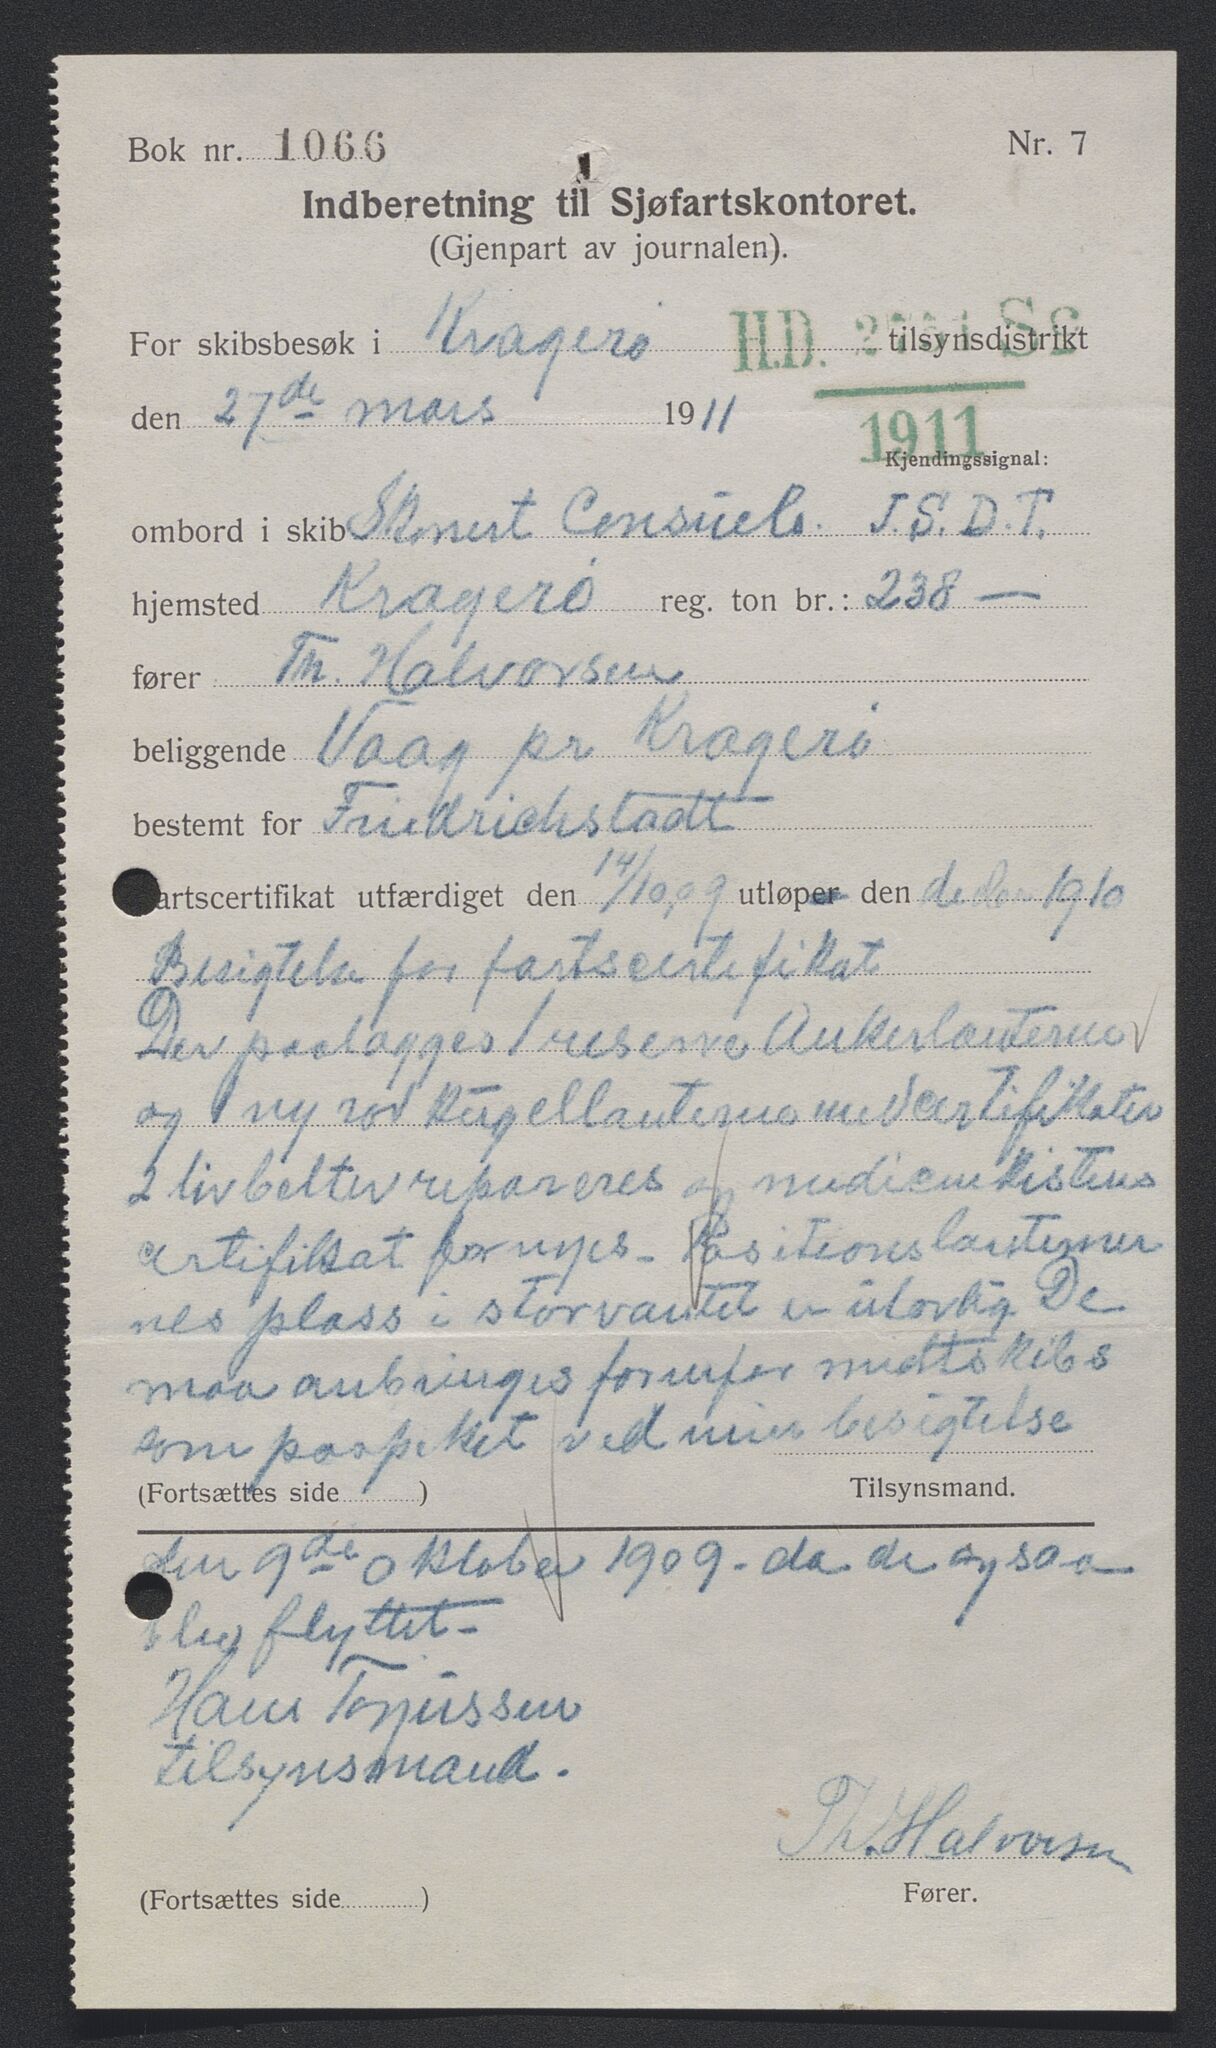 Bok nr. 1066 Nr. 7
Indberetning til Sjøfartskontoret.
(Gjenpart av journalen).
For skibsbesøk i Kragerø tilsynsdistrikt
H.D. SE
1911
den 27de mars 1911
Kjendingssignal:
ombord i skib Skonert Consuelo. J.S.D.T.
hjemsted Kragerø reg. ton br.: 238 —
fører Th. Halvorsen
beliggende Vaag pr Kragerø
bestemt for Friedrichstadt
artscertifikat utfærdiget den 14/10,09 utløper den 1910
Besigtelse for fartscertifikat
Der paalagges 1 reserve Ankerlanterne
og 1 ny rød kugellanterne med certifikater
2 livbelter repareres og medicinkistens
certifikat fornyes - Positionslanterner
nes plass i storvantet er ulovlig De
maa anbringes forenfor midtskibs
som paapeket ved min besigtelse
(Fortsættes side ) Tilsynsmand.
den 9de oktober 1909 - da de ogsaa
blev flyttet -
Hans Tojussen
tilsynsmand.
Th. Halvorsen
(Fortsættes side ) Fører.